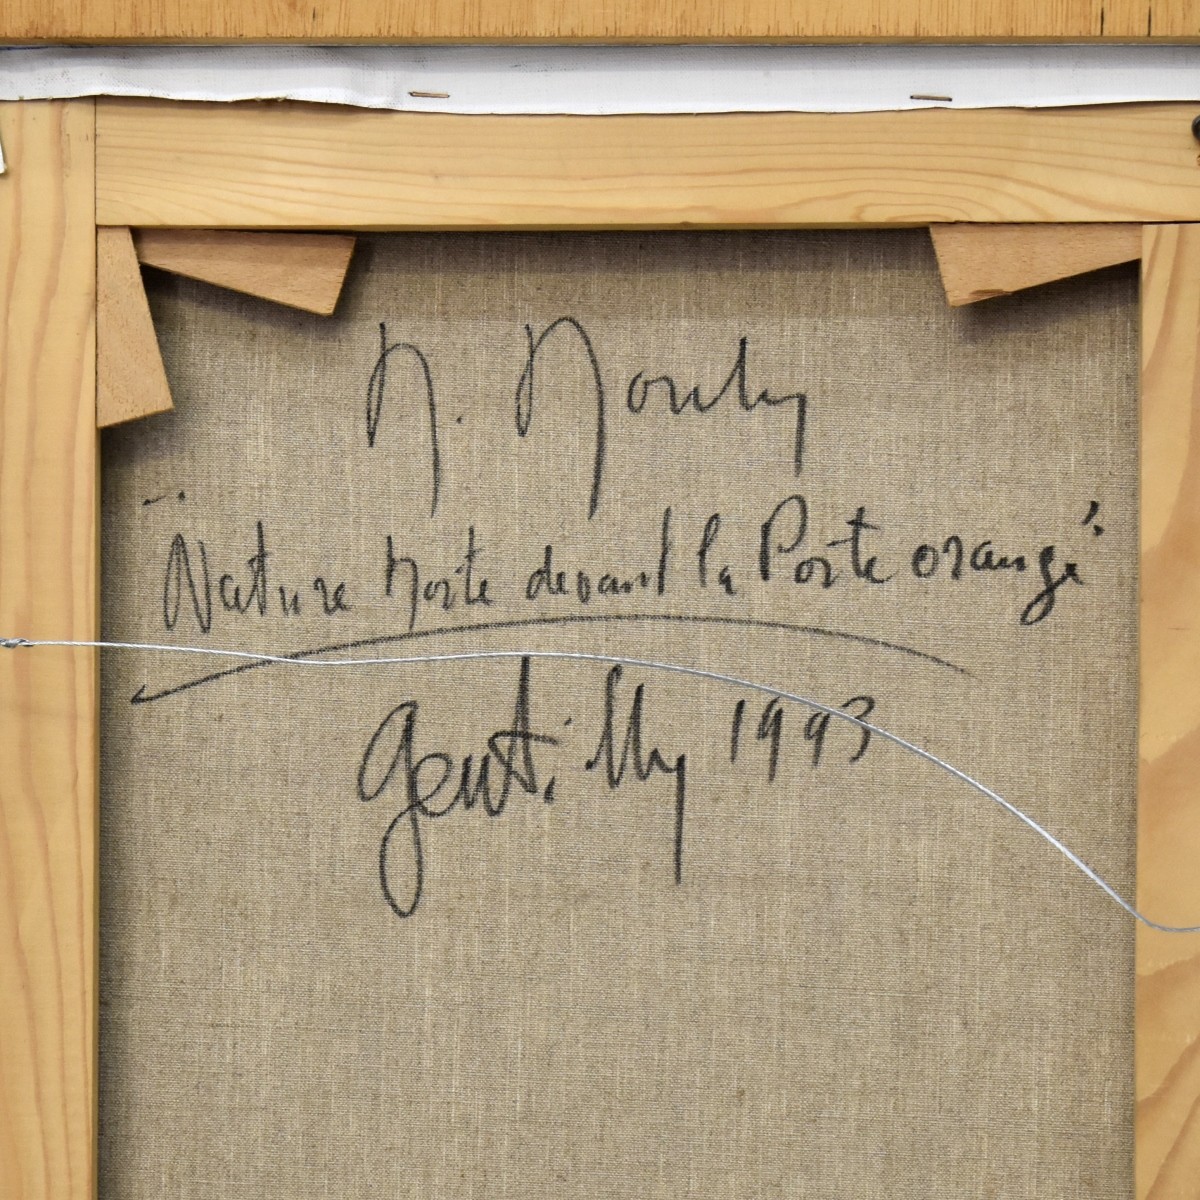 M. Mouly
"Nature Morte devant la Porte orange"
Gentilly 1993